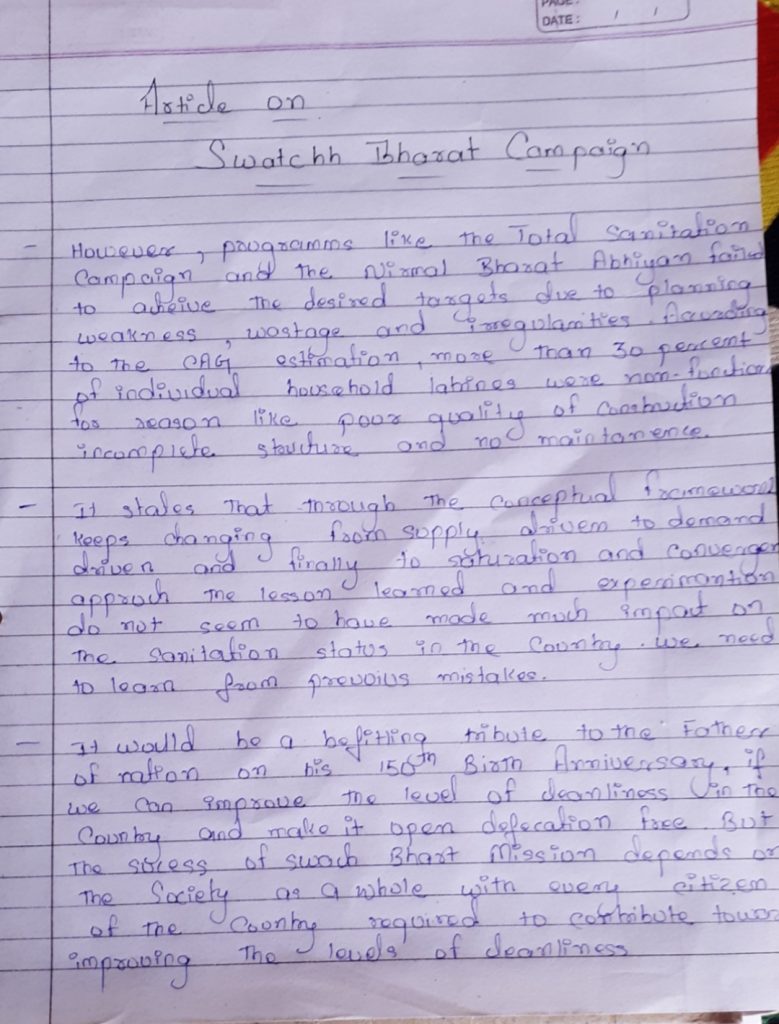 PAGE:
DATE: / /
Article on
Swatchh Bharat Campaign
- However, programms like the Total Sanitation
Campaign and the Nirmal Bharat Abhiyan failed
to acheive the desired targets due to planning
weakness, wastage and irregularities. According
to the CAG estimation, more than 30 percent
of individual household latrines were non-function
for reason like poor quality of Construction
incomplete structure and no maintanence.
- It states that through the Conceptual framewor
keeps changing from supply drivem to demand
driven and finally to saturation and Convergen
approch the lesson learned and experimantion
do not seem to have made much impact on
the Sanitation status in the Country. we need
to learn from prevoius mistakes.
- It would be a befitting tribute to the Fathers
of nation on his 150th Birth Anniversary, if
we can improve the level of cleanliness in the
Country and make it open defecation free. But
the sucess of swach Bhart Mission depends on
the Society as a whole with every citizen
of the Country required to contribute towar
improving the levels of cleanliness